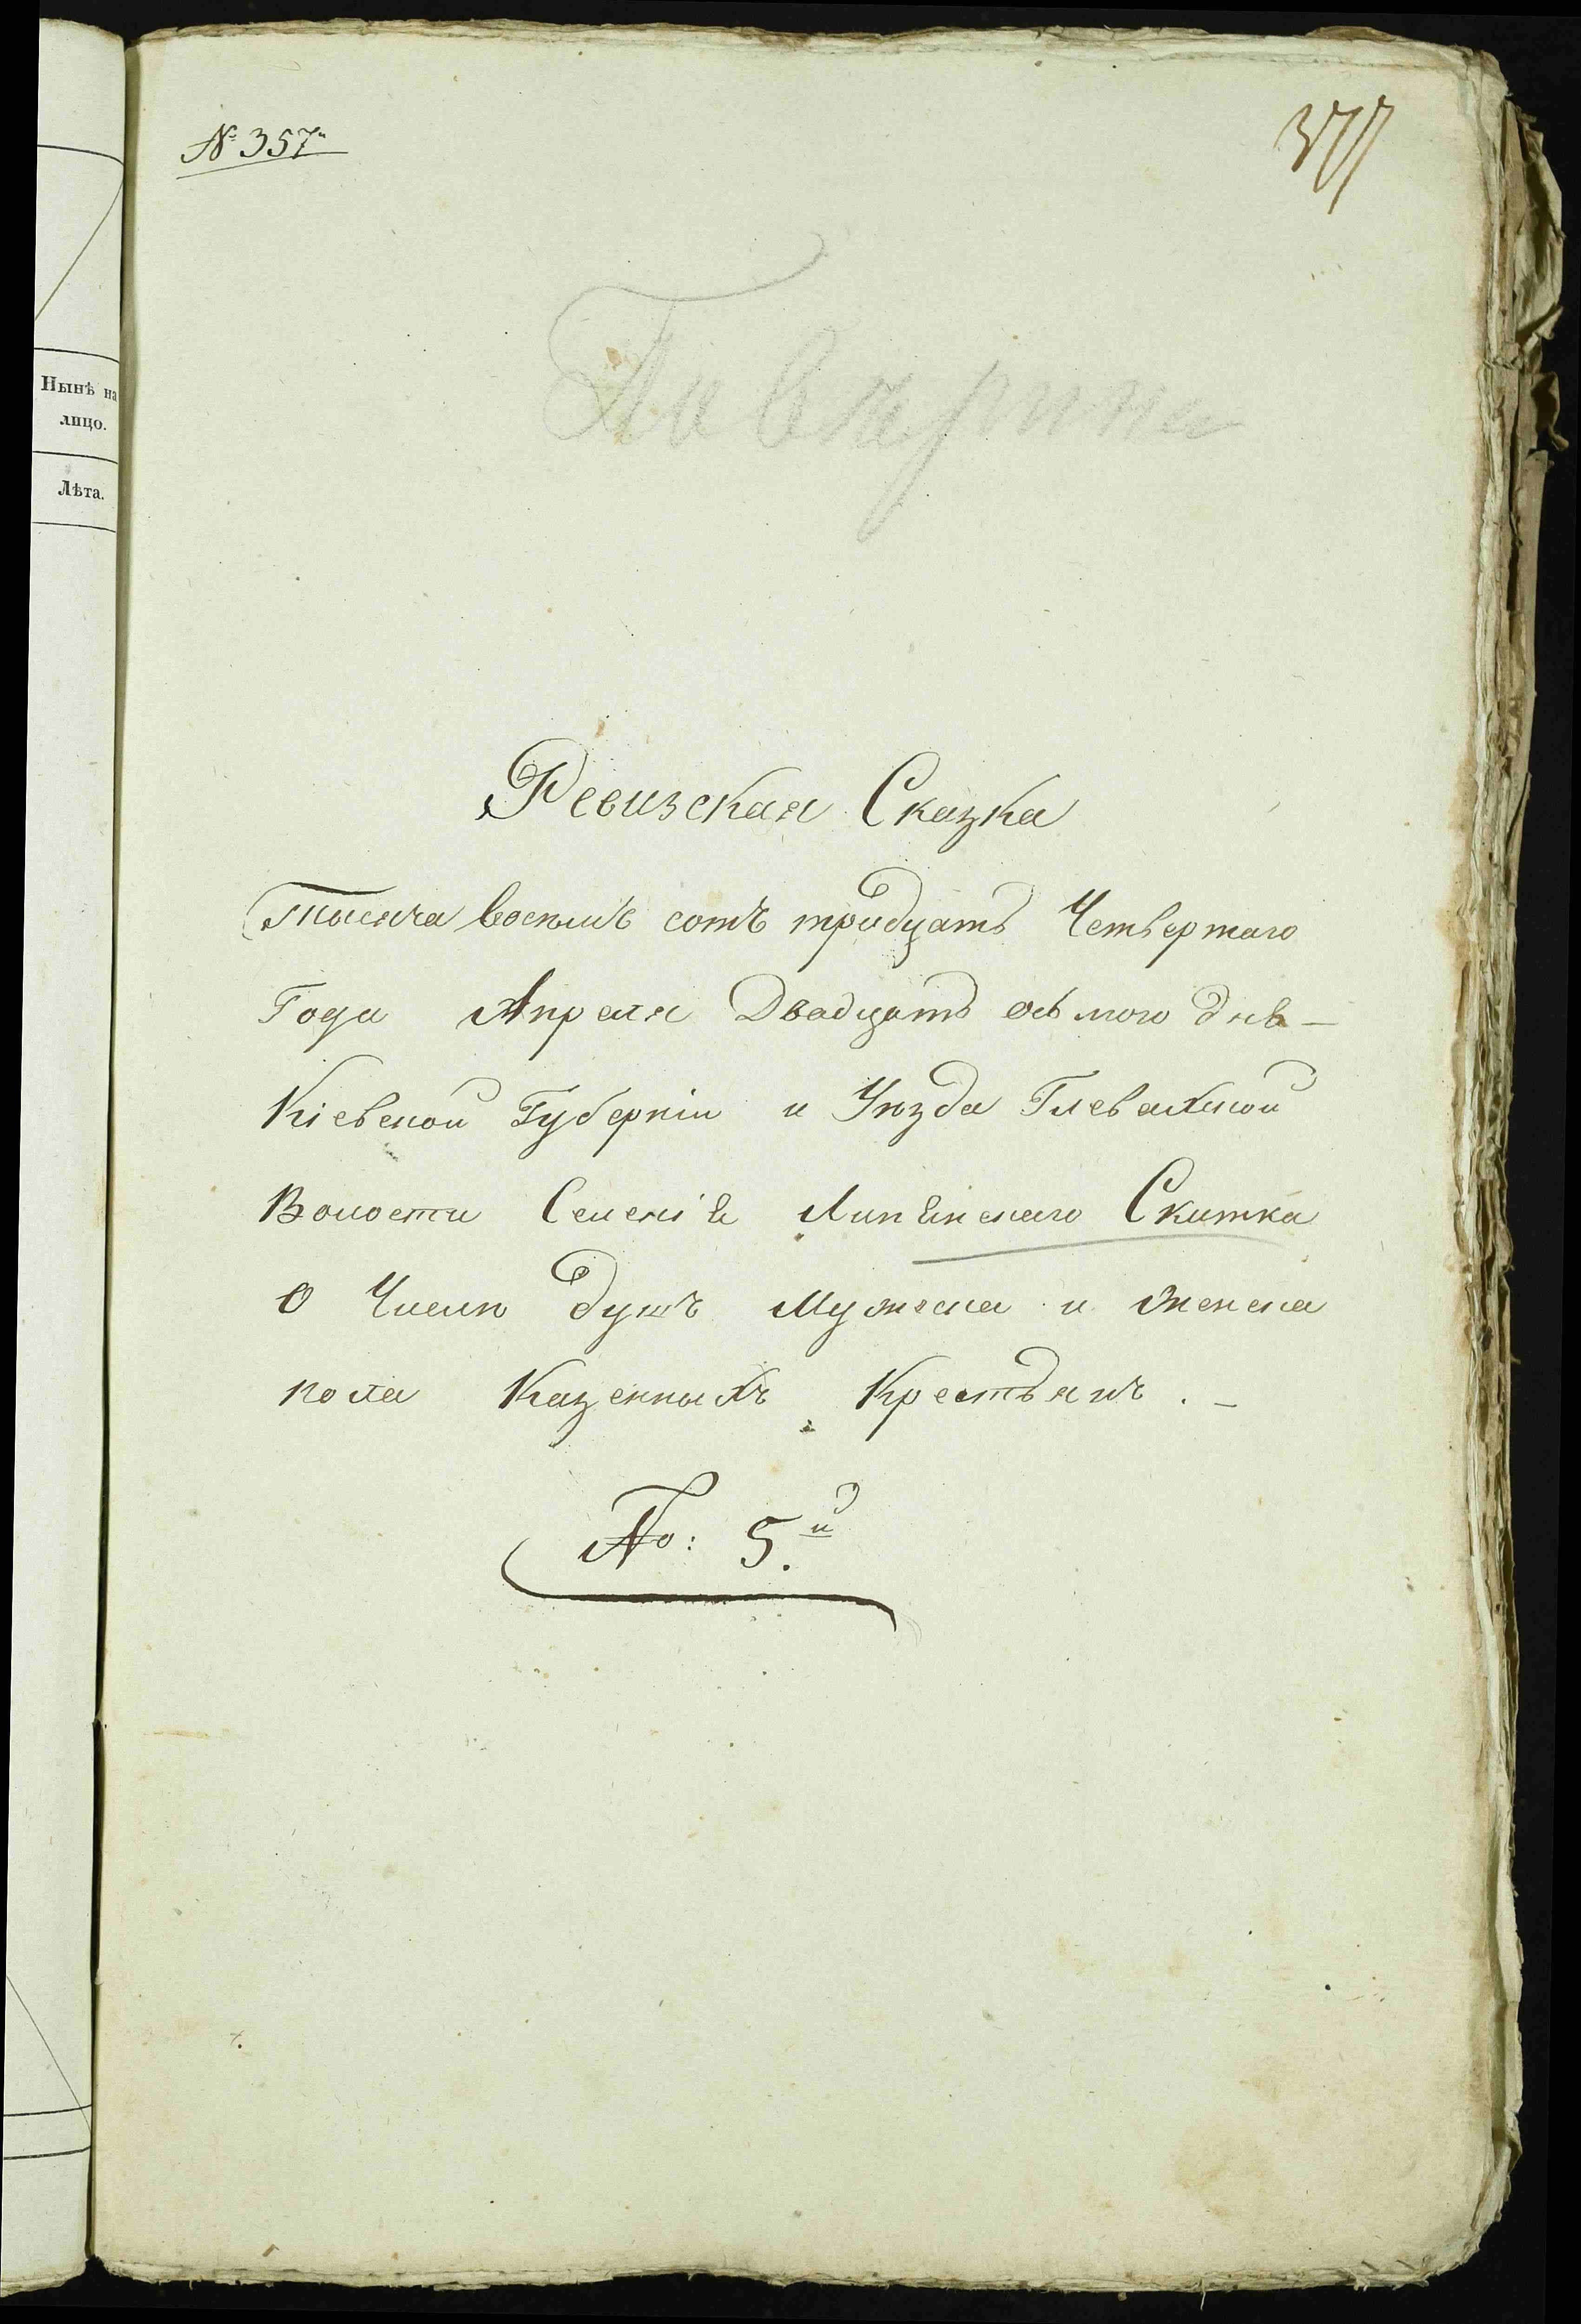 № 357й
377
Нынѣ на
лицо.
Лѣта.
Поверина
Ревизская Сказка
Тысяча восемь сотъ тридцать Четвертаго
Года Апреля Двадцать осьмого дня —
Кіевской Губерніи и Уѣзда Глевахской
Волости Селенія Липянскаго Скитка
О Числѣ душъ Мужеска и женска
пола Казенныхъ Крестьянъ . —
№: 5.й